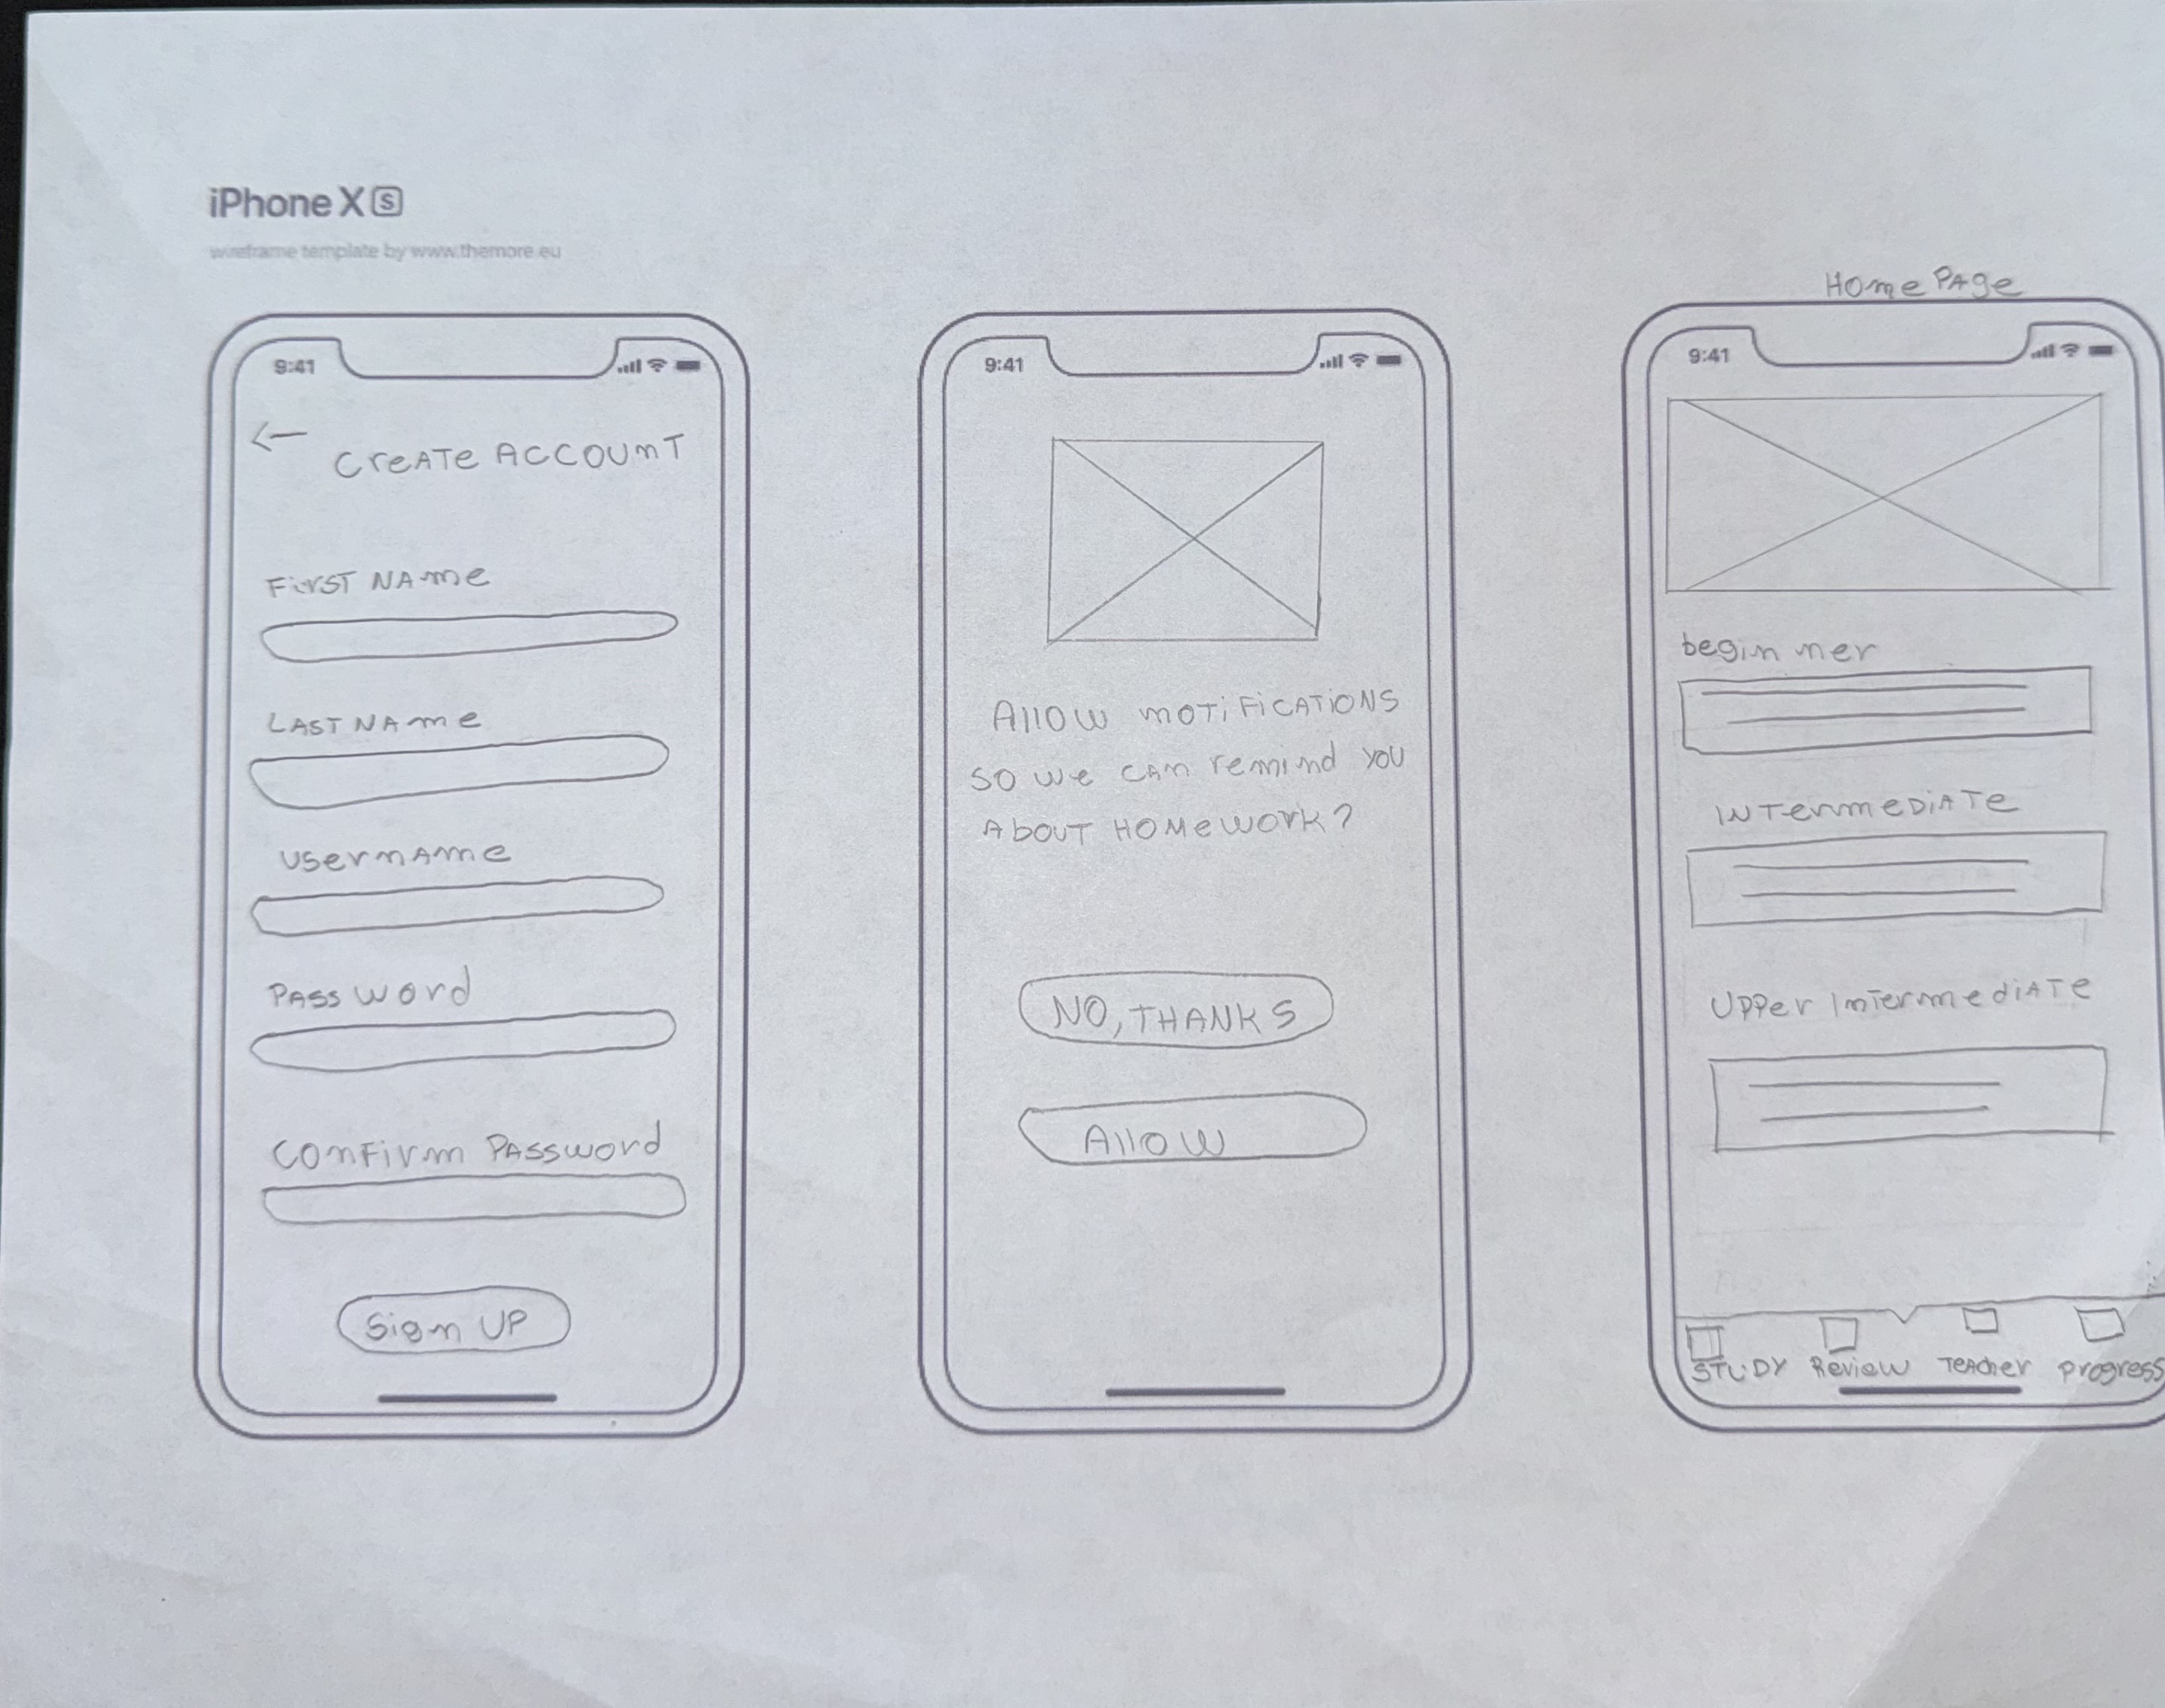 iPhone X S
wireframe template by www.themore.eu
9:41
← Create Account
First Name
Last Name
Username
Password
Confirm Password
Sign Up
9:41
Allow notifications
so we can remind you
about homework?
No, Thanks
Allow
Home Page
9:41
beginner
Intermediate
Upper Intermediate
Study Review Teacher progress